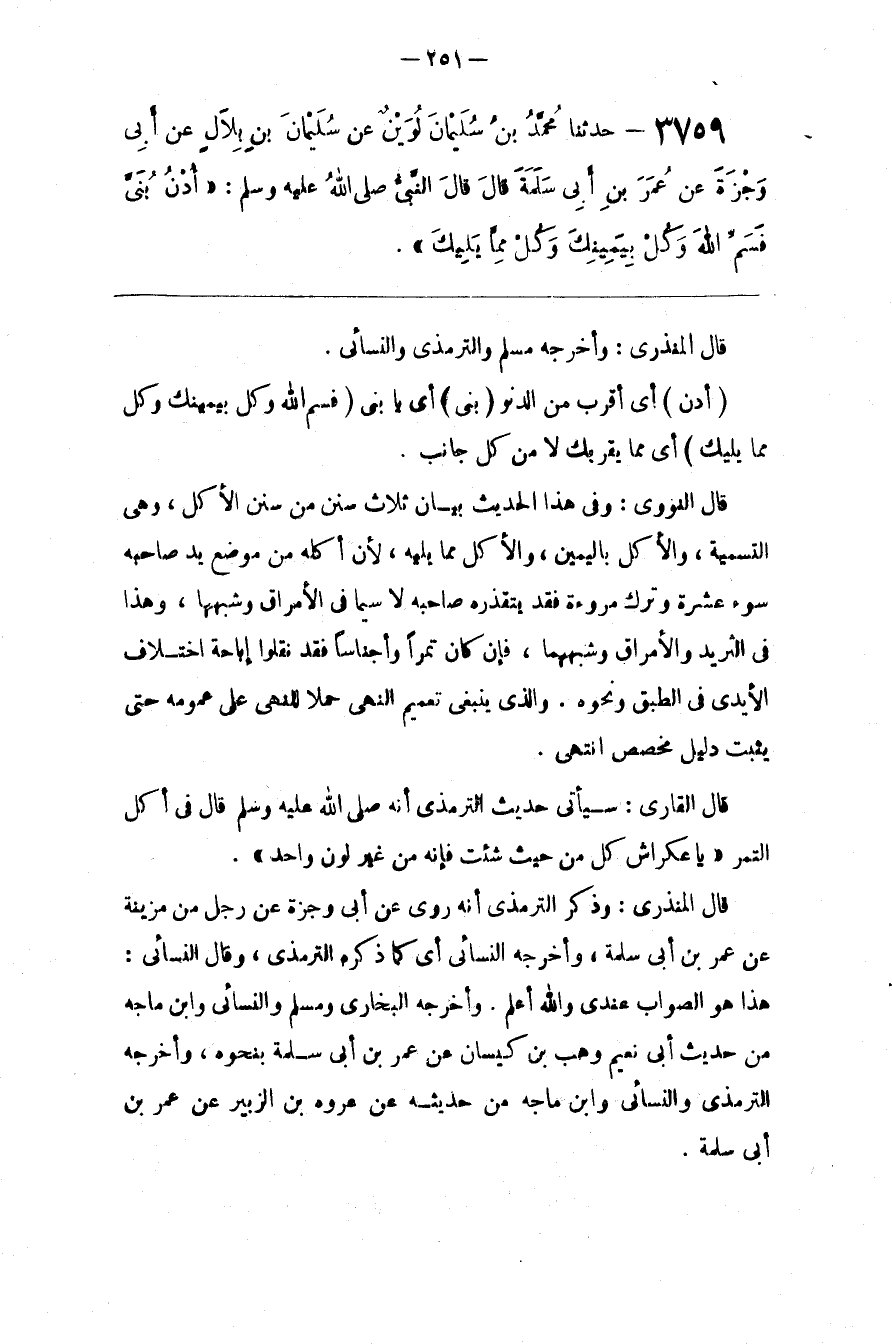 — ٢٥١ —
٣٧٥٩ — حدثنا مُحَمَّدُ بنُ سُلَيْمَانَ لُوَيْنٌ عن سُلَيْمَانَ بنِ بِلَالٍ عن أَبِى
وَجْزَةَ عن عُمَرَ بنِ أَبِى سَلَمَةَ قالَ قالَ النَّبِىُّ صلى اللهُ عليه وسلم : « أُدْنُ بُنَىَّ
فَسَمِّ اللهَ وَكُلْ بِيَمِينِكَ وَكُلْ مِمَّا يَلِيكَ » .
قال المنذرى : وأخرجه مسلم والترمذى والنسائى .
( أدن ) أى أقرب من الدنو ( بنى ) أى يا بنى ( فسم الله وكل بيمينك وكل
مما يليك ) أى مما يقربك لا من كل جانب .
قال النووى : وفى هذا الحديث بيـان ثلاث سنن من سنن الأكل ، وهى
التسمية ، والأكل باليمين ، والأكل مما يليه ، لأن أكله من موضع يد صاحبه
سوء عشرة وترك مروءة فقد يتقذره صاحبه لا سيما فى الأمراق وشبهها ، وهذا
فى الثريد والأمراق وشبههما ، فإن كان تمراً وأجناساً فقد نقلوا إباحة اختـلاف
الأيدى فى الطبق ونحوه . والذى ينبغى تعميم النهى حملا للنهى على عمومه حتى
يثبت دليل مخصص انتهى .
قال القارى : سـيأتى حديث الترمذى أنه صلى الله عليه وسلم قال فى أكل
التمر « يا عكراش كل من حيث شئت فإنه من غير لون واحد » .
قال المنذرى : وذكر الترمذى أنه روى عن أبى وجزة عن رجل من مزينة
عن عمر بن أبى سلمة ، وأخرجه النسائى أى كما ذكره الترمذى ، وقال النسائى :
هذا هو الصواب عندى والله أعلم . وأخرجه البخارى ومسلم والنسائى وابن ماجه
من حديث أبى نعيم وهب بن كيسان عن عمر بن أبى سـلمة بنحوه ، وأخرجه
الترمذى والنسائى وابن ماجه من حديثـه عن عروه بن الزبير عن عمر بن
أبى سلمة .